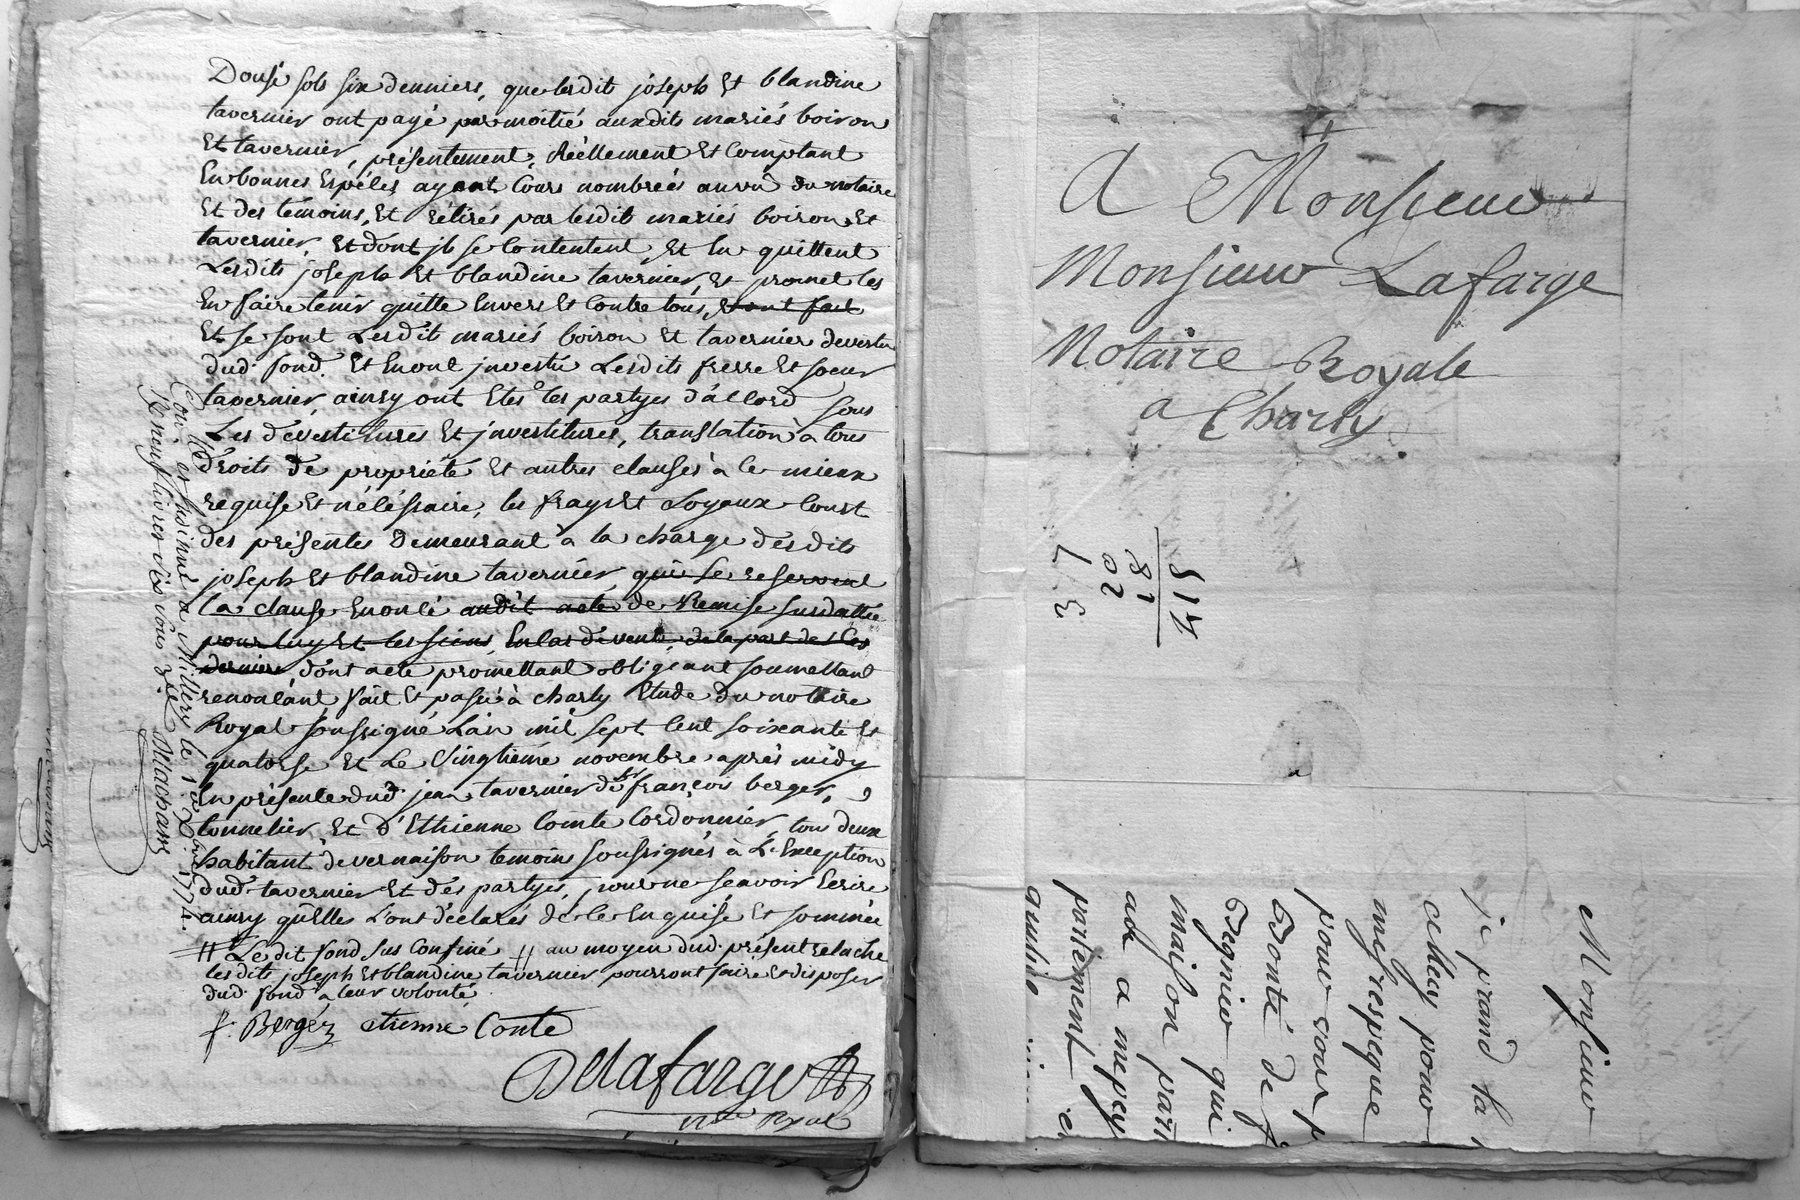 Dousé sols six denniers, que lesdits joseph Et blandine
tavernier ont payé par moitié auxdits mariés boiron
Et tavernier, présentement, Réellement Et Comptant
En bonnes Espéces ayant Cours nombrées au vû du notaire
Et des témoins, Et rétirés par lesdits mariés boiron Et
tavernier Et dont jls se Contentent, Et En quittent
Lesdits joseph Et blandine tavernier, Et promet les
En faire tenir quitte Envers Et Contre tous, dont fait
Et se sont Lesdits mariés boiron Et tavernier devestu
dud. fond. Et En ont jnvesti Lesdits frerre Et soeur
tavernier, ainsy ont Etés les partyes d'accord sous
Les dévestitures Et jnvestitures, translation à tous
droits de propriété Et autres clauses à ce mieux
requise Et nécéssaire, les frays Et Loyeux Coust
des présentes Demeurant à la charge desdits
joseph Et blandine tavernier qui se reservent
la clause Enoncé audit acte de Remise susdattée
pour luy Et les siens, En Cas de vente, de la part de Ces
derniers dont acte promettant obligeant soumettant
renonçant fait Et passé à charly Etude du notaire
Royal soussigné L'an mil sept Cent soixante Et
quatorse Et Le Vingtiémé novembre après midy
En présence dud. jean tavernier de sr françois berger,
tonnelier Et d'Ethienne Comte Cordonnier, tous deux
habitant de vernaison temoins soussignés à L'Exception
dud. tavernier Et des partyes, pour ne sçavoir Ecrire
ainsy qu'Elles L'ont déclarés de ce Enquise Et sommée
// Le dit fond sus Confiné // au moyen dud. présent relache
lesdits joseph Et blandine tavernier pourront faire Et disposer
dud. fond à leur volonté
f. Bergér etienne Conte
Delafarge
nre Royal
Con.llé et Insinué a Millery le 1er Xbre 1774.
Reçu neuf livres six sous
A Monsieur
Monsieur Lafarge
Notaire Royale
a Charly
Monsieur
je prand la
pour
mes respeque
pour vous p
Bonté de f
Regnier qui
maison part
parlement